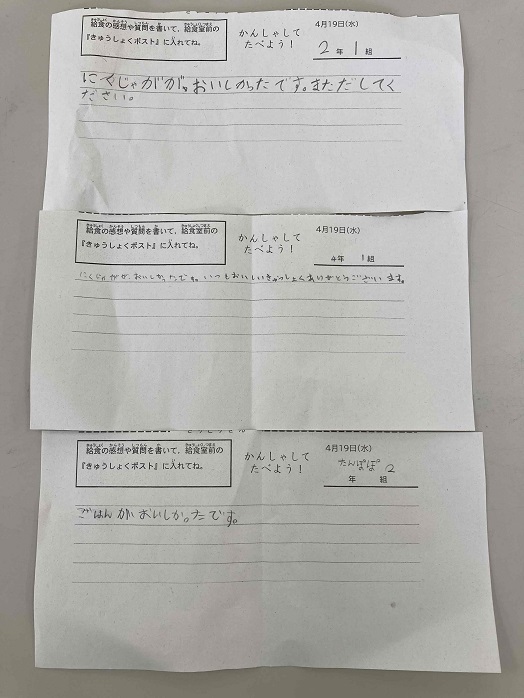 給食の感想や質問を書いて、給食室前の
『きゅうしょくポスト』に入れてね。
かんしゃして
たべよう！
4月19日(水)
2年 1組
にくじゃがが。おいしかったです。まただしてく
ださい。
給食の感想や質問を書いて、給食室前の
『きゅうしょくポスト』に入れてね。
かんしゃして
たべよう！
4月19日(水)
4年 1組
おいしかったです。いつもおいしいきゅうしょくありがとうございます。
給食の感想や質問を書いて、給食室前の
『きゅうしょくポスト』に入れてね。
かんしゃして
たべよう！
4月19日(水)
たんぽぽ 2
年 組
ごはんがおいしかったです。